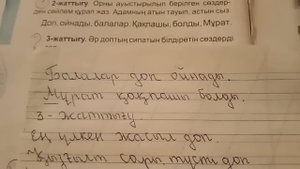 2-жаттығу. Орны ауыстырылып берілген сөздер-
ден сөйлем құрап жаз. Адамның атын тауып, астын сыз.
Доп, ойнады, балалар. Қақпашы, болды, Мұрат.
3-жаттығу. Әр доптың сипатын білдіретін сөздерді
Балалар доп ойнады.
Мұрат қақпашы болды.
3 - жаттығу
Ең үлкен жасыл доп.
Қызғылт сары түсті доп